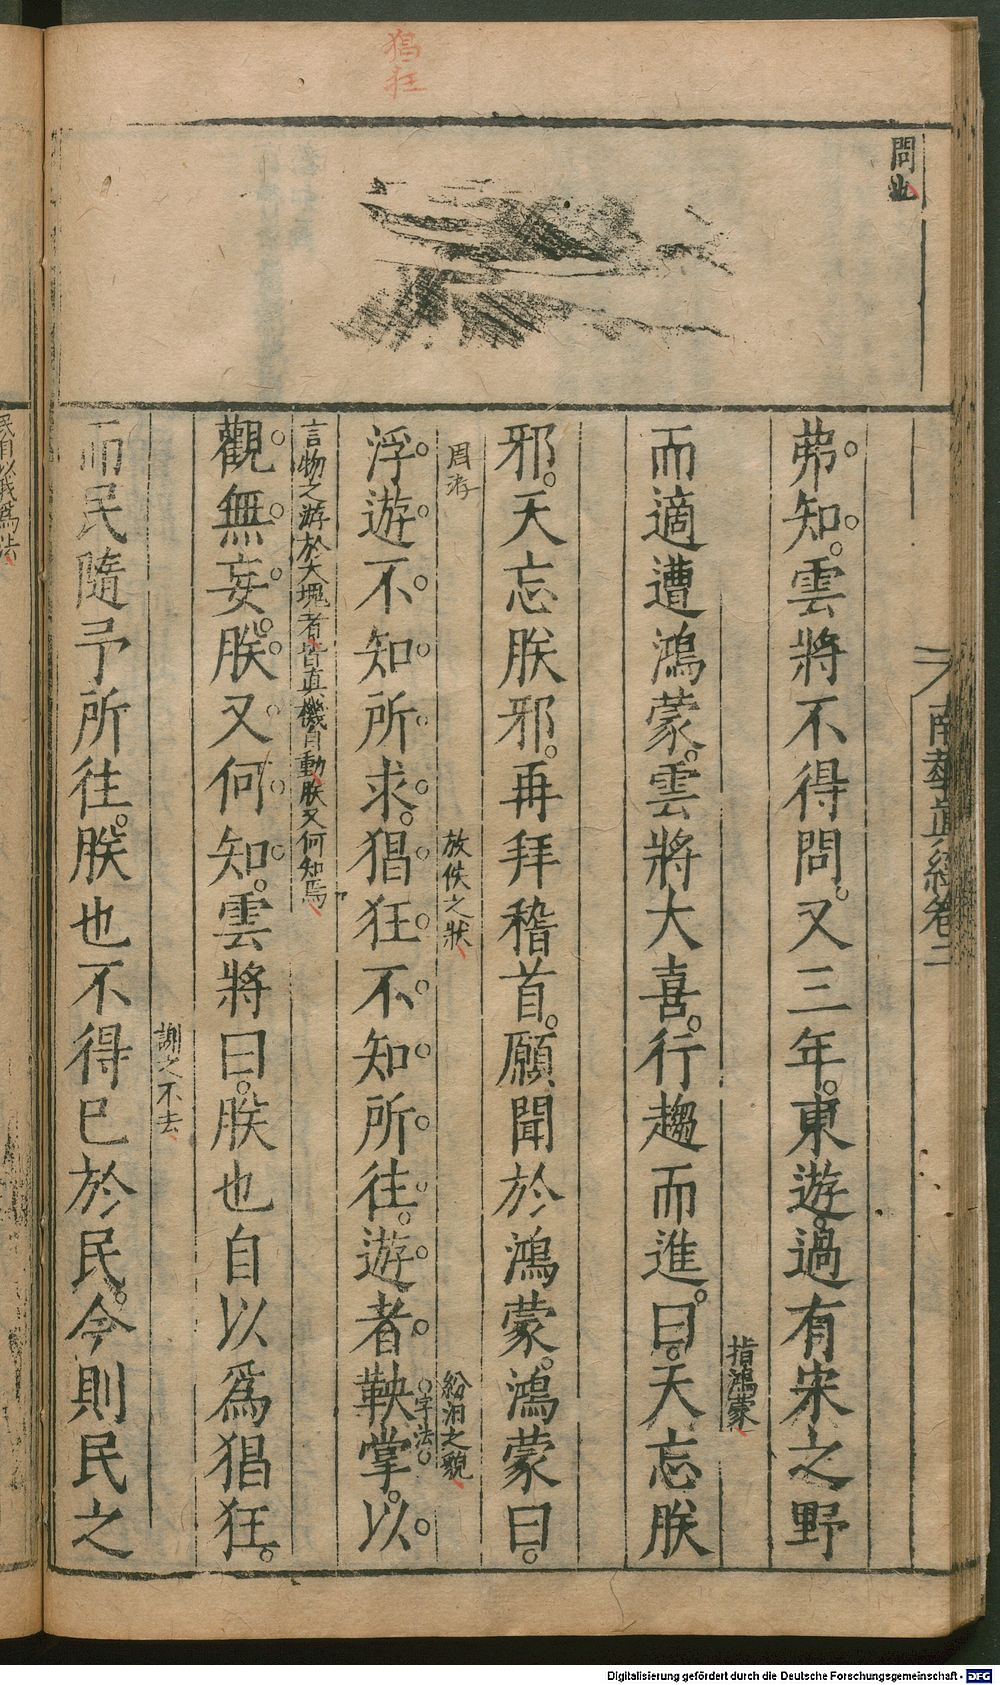 猖狂
問此
南華真經卷二
弗知雲將不得問又三年東遊過有宋之野
指鴻蒙
而適遭鴻蒙雲將大喜行趨而進曰天忘朕
邪天忘朕邪再拜稽首願聞於鴻蒙鴻蒙曰
周游
放佚之狀
紛汩之貌
浮遊不知所求猖狂不知所往遊者鞅掌以
字法
言物之游於大塊者皆真機自動朕又何知焉
觀無妄朕又何知雲將曰朕也自以爲猖狂
謝之不去
而民隨予所往朕也不得已於民今則民之
民自以我爲法
Digitalisierung gefördert durch die Deutsche Forschungsgemeinschaft - DFG